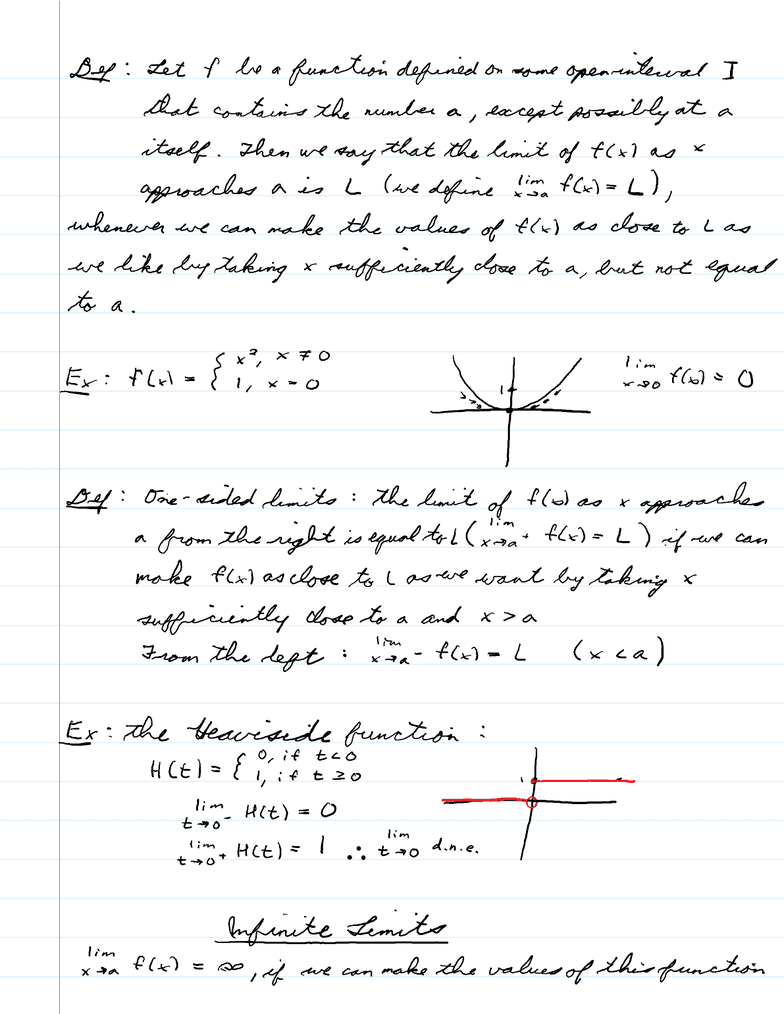 Def: Let f be a function defined on some open interval I
that contains the number a, except possibly at a
itself. Then we say that the limit of f(x) as x
approaches a is L (we define lim x→a f(x) = L),
whenever we can make the values of f(x) as close to L as
we like by taking x sufficiently close to a, but not equal
to a.
Ex: f(x) = { x², x ≠ 0
1, x = 0
1
lim x→0 f(x) = 0
Def: One-sided limits: the limit of f(x) as x approaches
a from the right is equal to L (lim x→a⁺ f(x) = L) if we can
make f(x) as close to L as we want by taking x
sufficiently close to a and x > a
From the left: lim x→a⁻ f(x) = L (x < a)
Ex: the Heaviside function:
H(t) = { 0, if t < 0
1, if t ≥ 0
1
lim t→0⁻ H(t) = 0
lim t→0⁺ H(t) = 1 ∴ lim t→0 d.n.e.
Infinite Limits
lim x→a f(x) = ∞, if we can make the values of this function